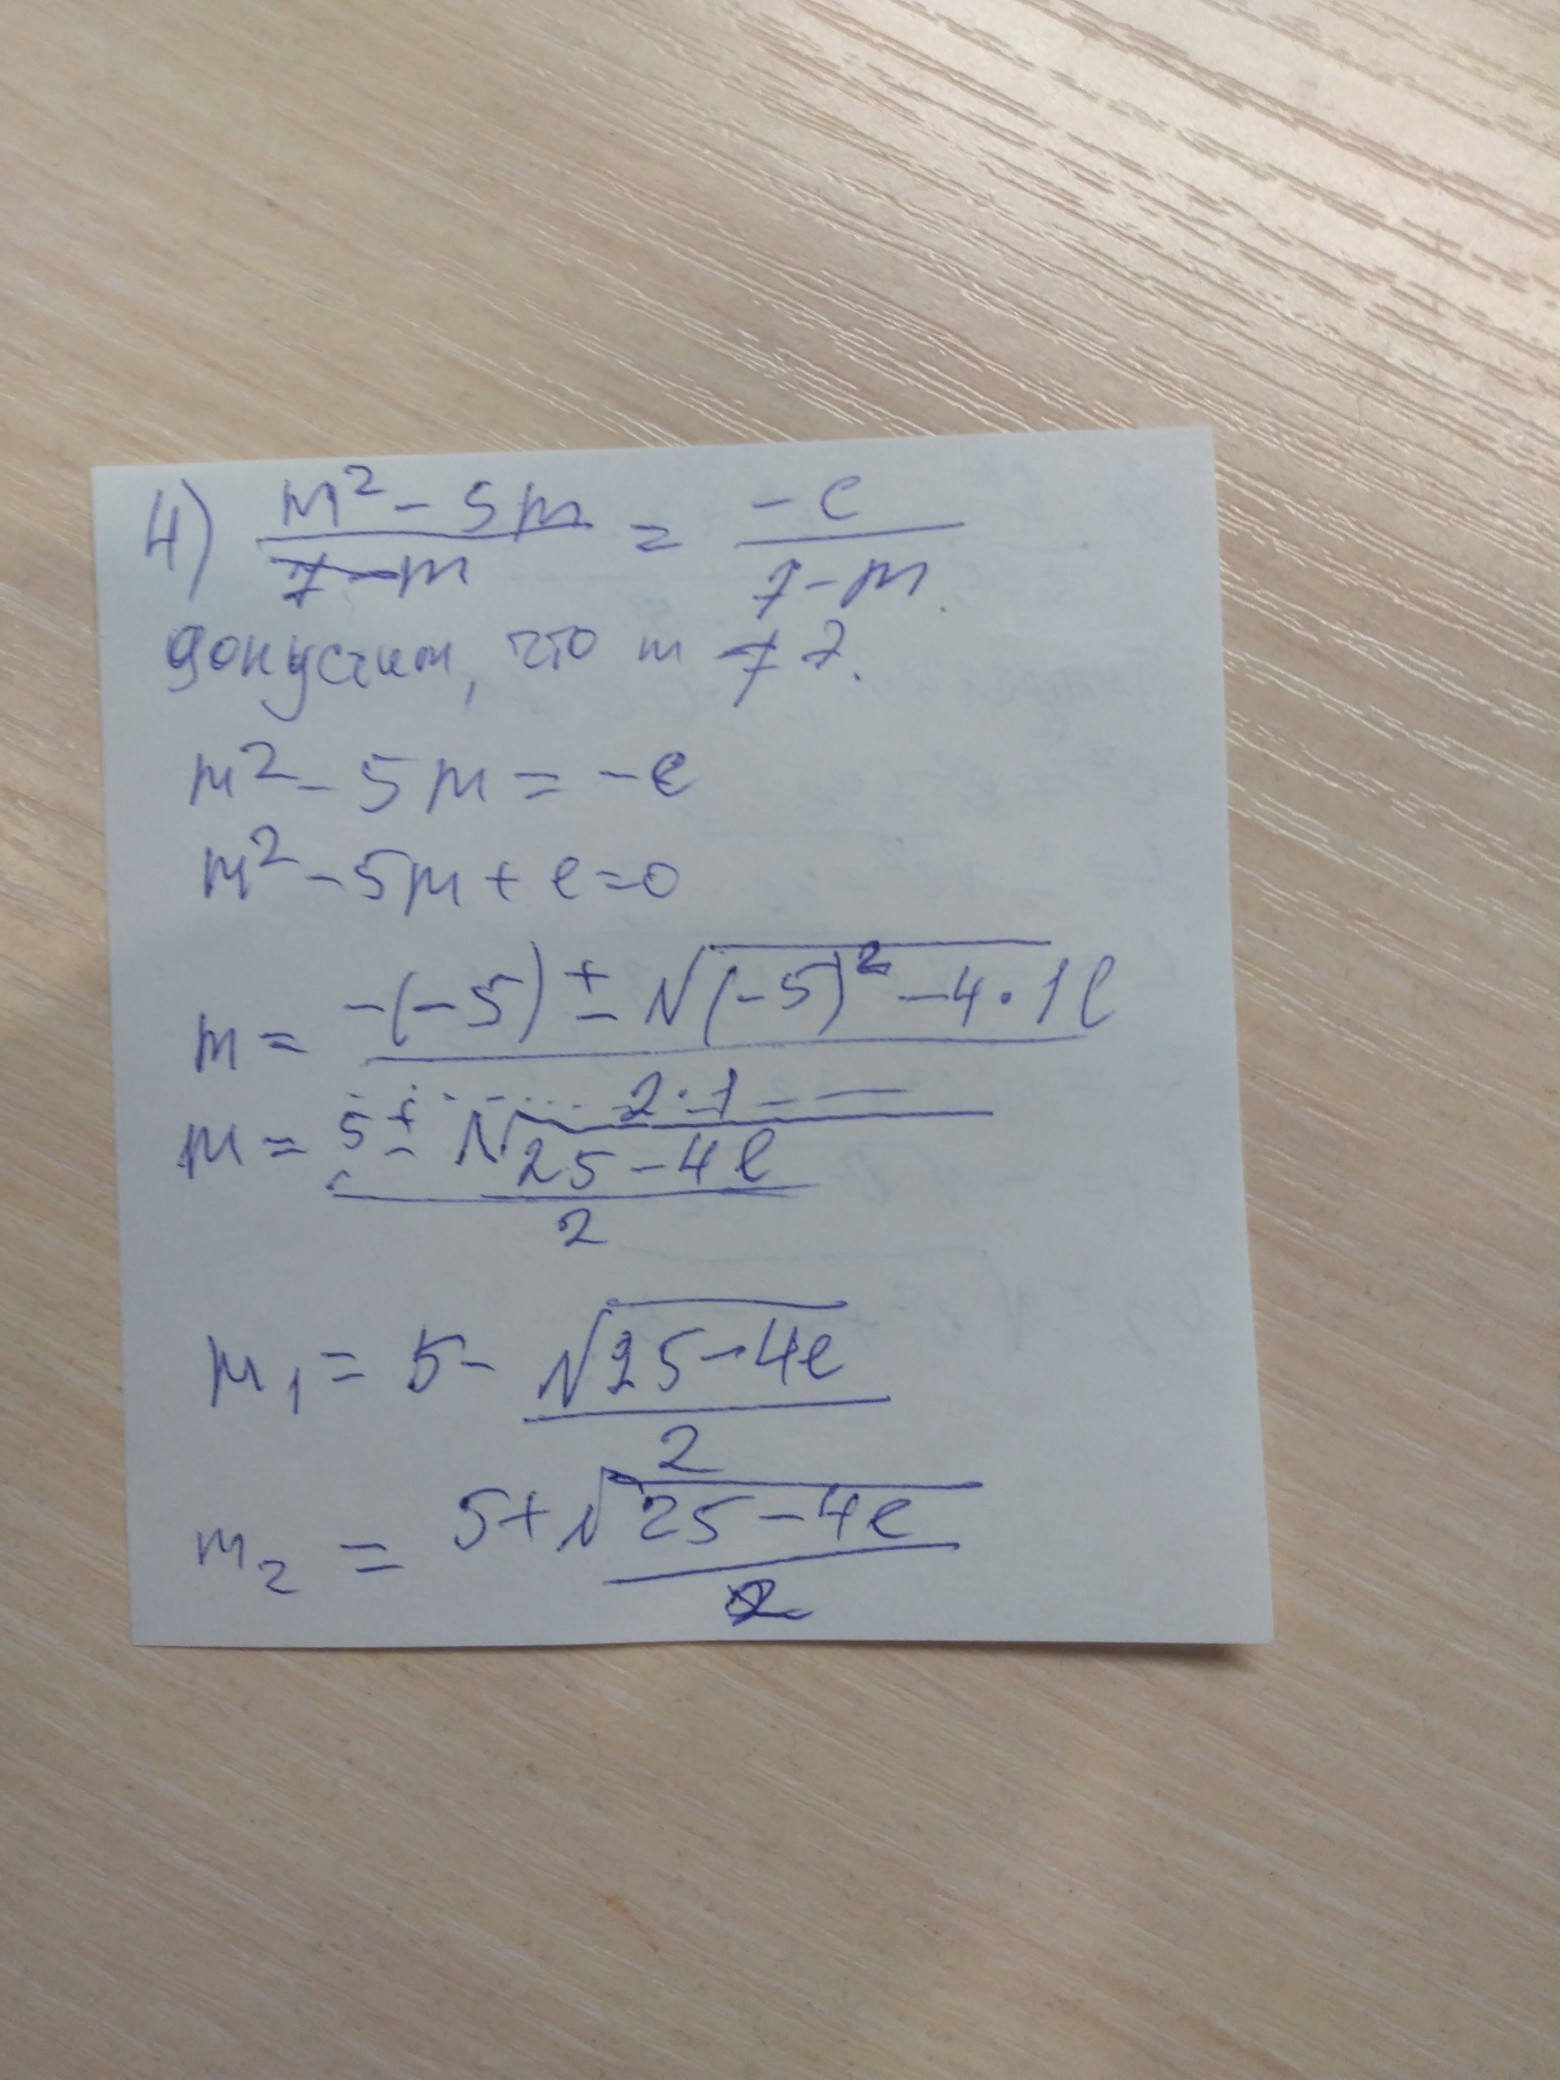 4) (m² - 5m)/(7-m) = (-e)/(7-m)
допустим, что m ≠ 7.
m² - 5m = -e
m² - 5m + e = 0
m = (-(-5) ± √((-5)² - 4·1e))/(2·1)
m = (5 ± √(25-4e))/2
m₁ = 5 - √(25-4e)/2
m₂ = (5+√(25-4e))/2